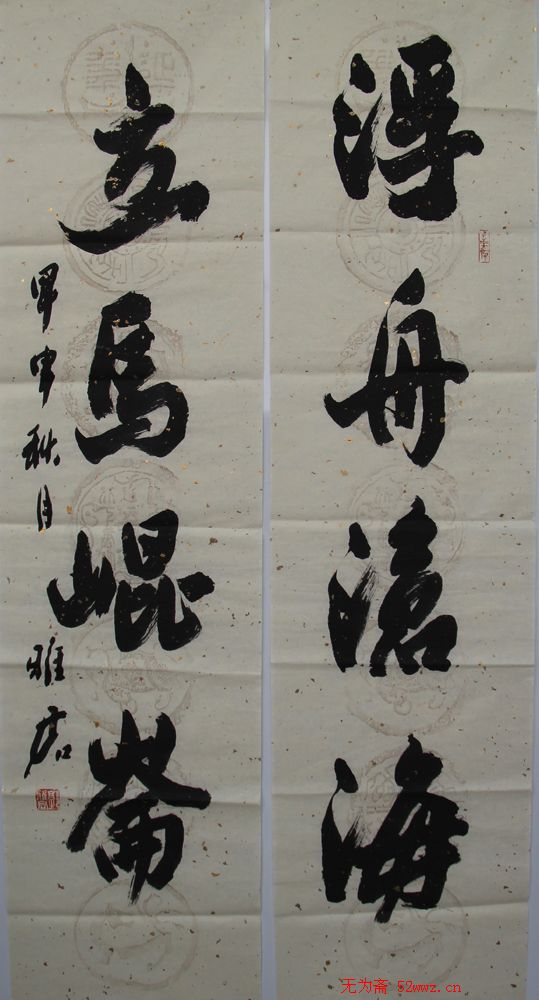 浮舟滄海
立馬崐崙
甲申秋月 雅君
无为斋 52wwz.cn